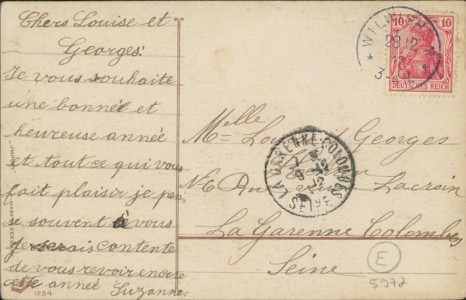 Chers Louise et
Georges:
Je vous souhaite
une bonne et
heureuse année
et tout ce qui vous
fait plaisir je pense
se souvent à vous
je serais contente
de vous revoir encore
cette année Suzanne
1234
10 10
DEUTSCHES REICH
WILWISH
28.12
3-4
Melle
Georges
LA GARENNE-COLOMBES
SEINE
Rue Lacroin
La Garenne Colombes
Seine
E
5972